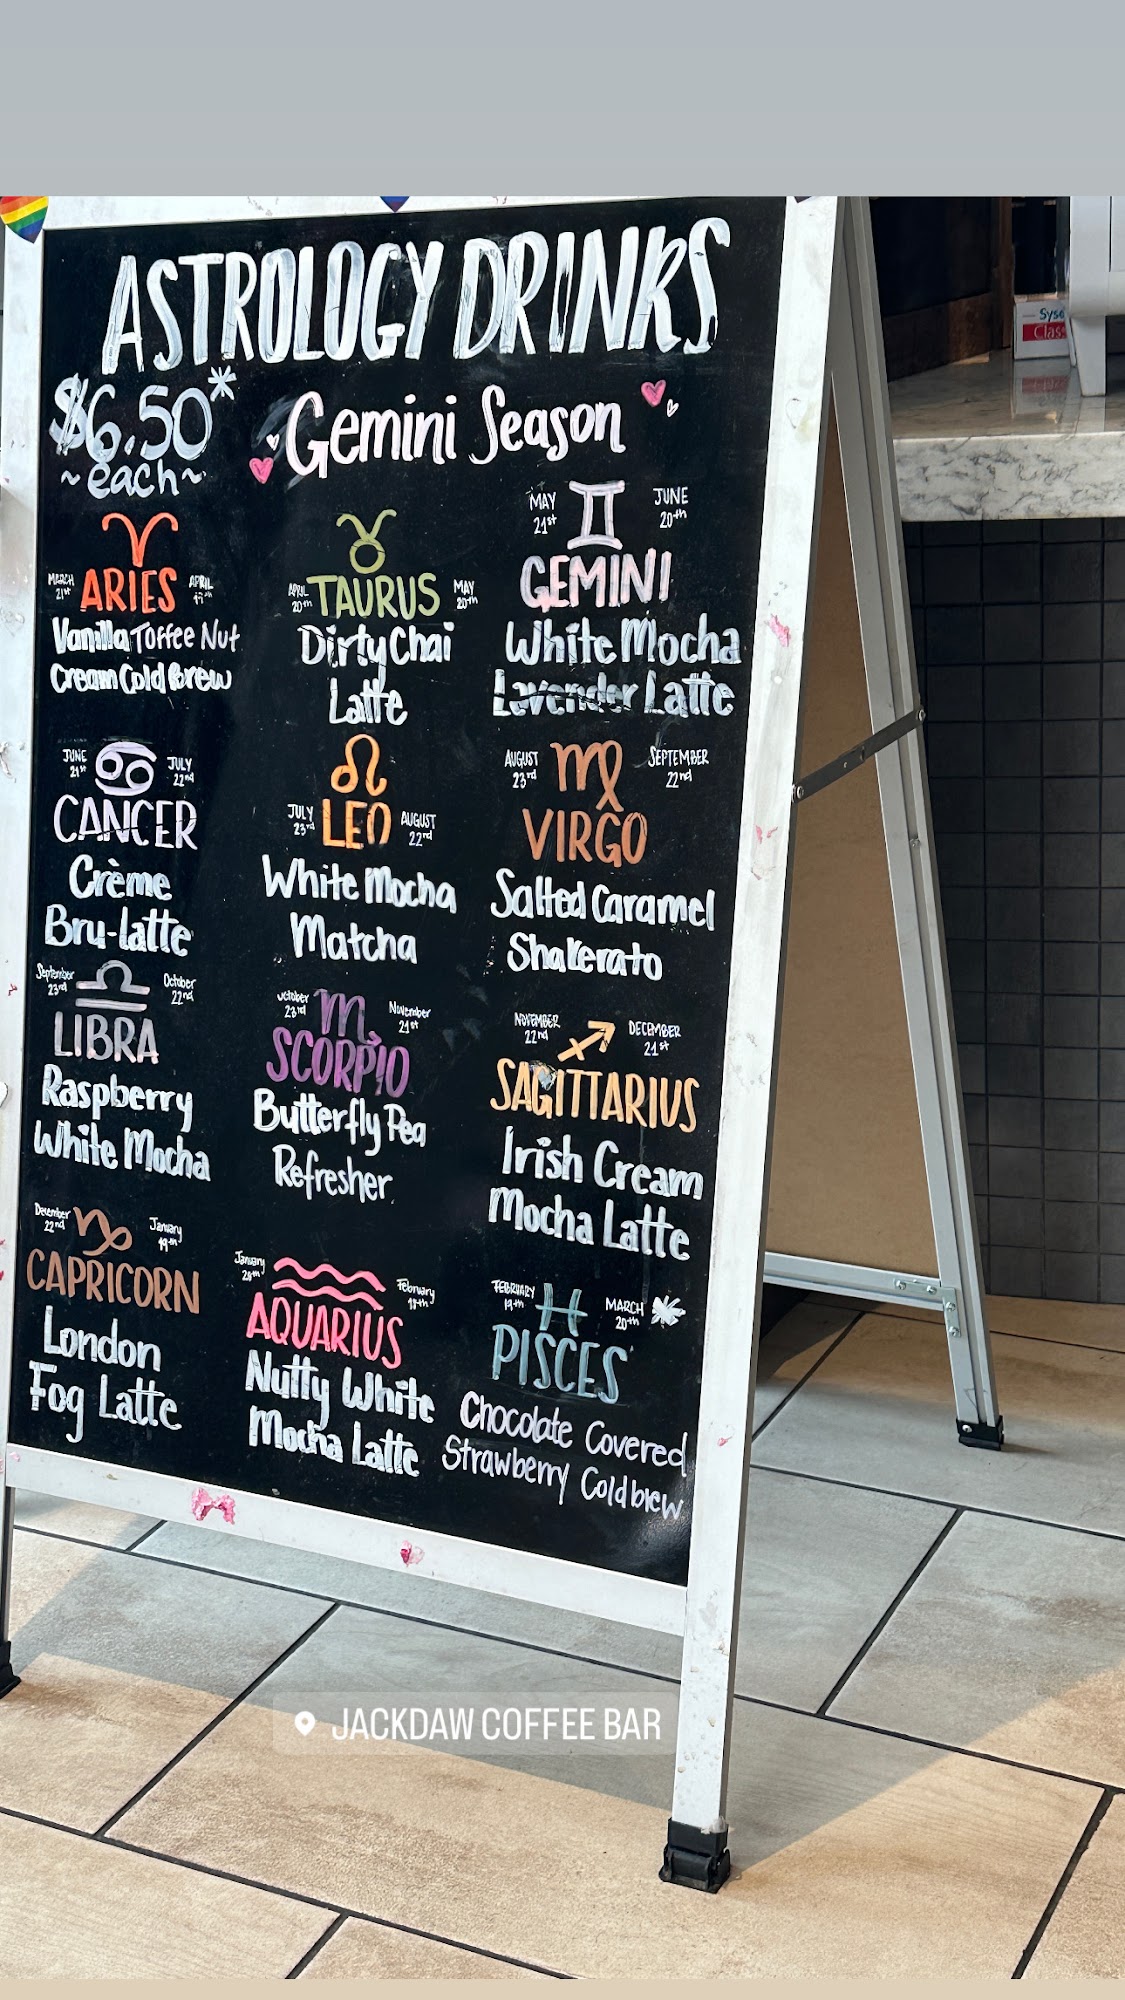 ASTROLOGY DRINKS
$6.50*
~each~
Gemini Season
MARCH 21st
ARIES
APRIL 19th
Vanilla Toffee Nut
Cream Cold Brew
APRIL 20th
TAURUS
MAY 20th
Dirty Chai
Latte
MAY 21st
JUNE 20th
GEMINI
White Mocha
Lavender Latte
JUNE 21st
JULY 22nd
CANCER
Crème
Bru-latte
JULY 23rd
LEO
AUGUST 22nd
White Mocha
Matcha
AUGUST 23rd
SEPTEMBER 22nd
VIRGO
Salted Caramel
Shakerato
September 23rd
October 22nd
LIBRA
Raspberry
White Mocha
October 23rd
November 21st
SCORPIO
Butterfly Pea
Refresher
NOVEMBER 22nd
DECEMBER 21st
SAGITTARIUS
Irish Cream
Mocha Latte
December 22nd
January 19th
CAPRICORN
London
Fog Latte
January 20th
February 18th
AQUARIUS
Nutty White
Mocha Latte
FEBRUARY 19th
MARCH 20th
PISCES
Chocolate Covered
Strawberry Coldbrew
JACKDAW COFFEE BAR